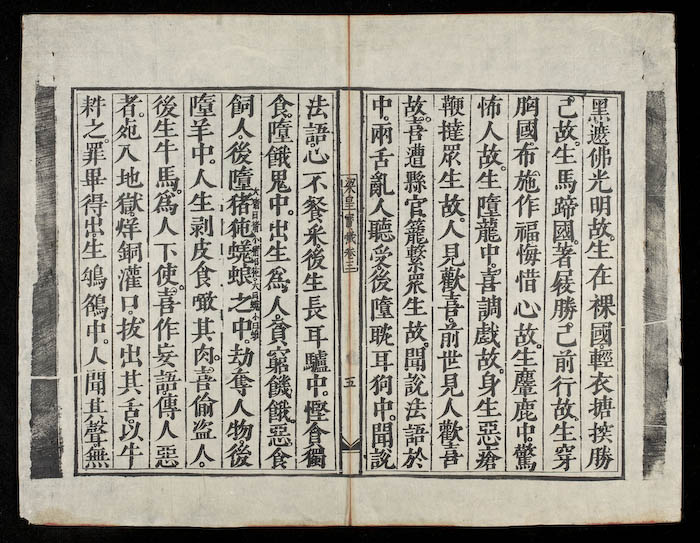 黑遮佛光明故。生在裸國。輕衣搪揬勝
己故。生馬蹄國。著屐勝己前行故。生穿
胸國。布施作福悔惜心故。生麞鹿中。驚
怖人故。生墮龍中。喜調戲故。身生惡瘡
鞭撻眾生故。人見歡喜。前世見人歡喜
故。喜遭縣官籠繫眾生故。聞說法語於
中。兩舌亂人聽受後墮耽耳狗中。聞說
梁皇寶懺卷三
五
法語。心不餐采後生長耳驢中。慳貪獨
食。墮餓鬼中。出生為人。貧窮饑餓惡食
飼人。後墮猪㹠蜣蜋之中。劫奪人物。後
墮羊中。人生剥皮食噉其肉。喜偷盜人。
後生牛馬。為人下使。喜作妄語傳人惡
者。死入地獄。烊銅灌口。拔出其舌。以牛
耕之。罪畢得出。生鴝鵒中。人聞其聲無